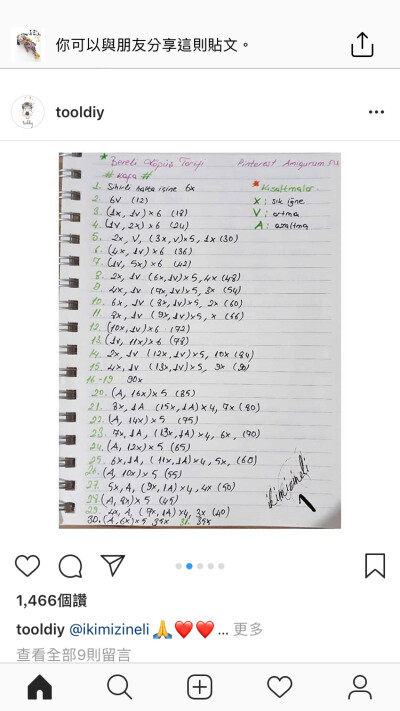 你可以與朋友分享這則貼文。
tooldiy
Bereli Köpük Tarifi Pinterest Amigurumi
# Kafa # Kısaltmalar
1. Sihirli halka içine 6x X: sık iğne
2. 6V (12) V: artma
3. (1x, 1v) x 6 (18) A: azaltma
4. (1V, 2x) x 6 (24)
5. 2x, V, (3x, v) x 5, 1x (30)
6. (4x, 1v) x 6 (36)
7. (1v, 5x) x 6 (42)
8. 2x, 1v (6x, 1v) x 5, 4x (48)
9. 4x, 1v (7x, 1v) x 5, 3x (54)
10. 6x, 1v (8x, 1v) x 5, 2x (60)
11. 8x, 1v (9x, 1v) x 5, x (66)
12. (10x, 1v) x 6 (72)
13. (1v, 11x) x 6 (78)
14. 2x, 1v (12x, 1v) x 5, 10x (84)
15. 4x, 1v (13x, 1v) x 5, 9x (90)
16-19 90x
20. (A, 16x) x 5 (85)
21. 8x, 1A (15x, 1A) x 4, 7x (80)
22. (A, 14x) x 5 (75)
23. 7x, 1A, (13x, 1A) x 4, 6x, (70)
24. (A, 12x) x 5 (65)
25. 6x, 1A, (11x, 1A) x 4, 5x, (60)
26. (A, 10x) x 5 (55)
27. 5x, A, (9x, 1A) x 4, 4x (50)
28. (A, 8x) x 5 (45)
29. 4x, A, (7x, 1A) x 4, 3x (40)
30. (A, 6x) x 5 35x 31. 35x
ikimizineli
1
1,466個讚
tooldiy @ikimizineli 🙏❤️❤️ ... 更多
查看全部9則留言